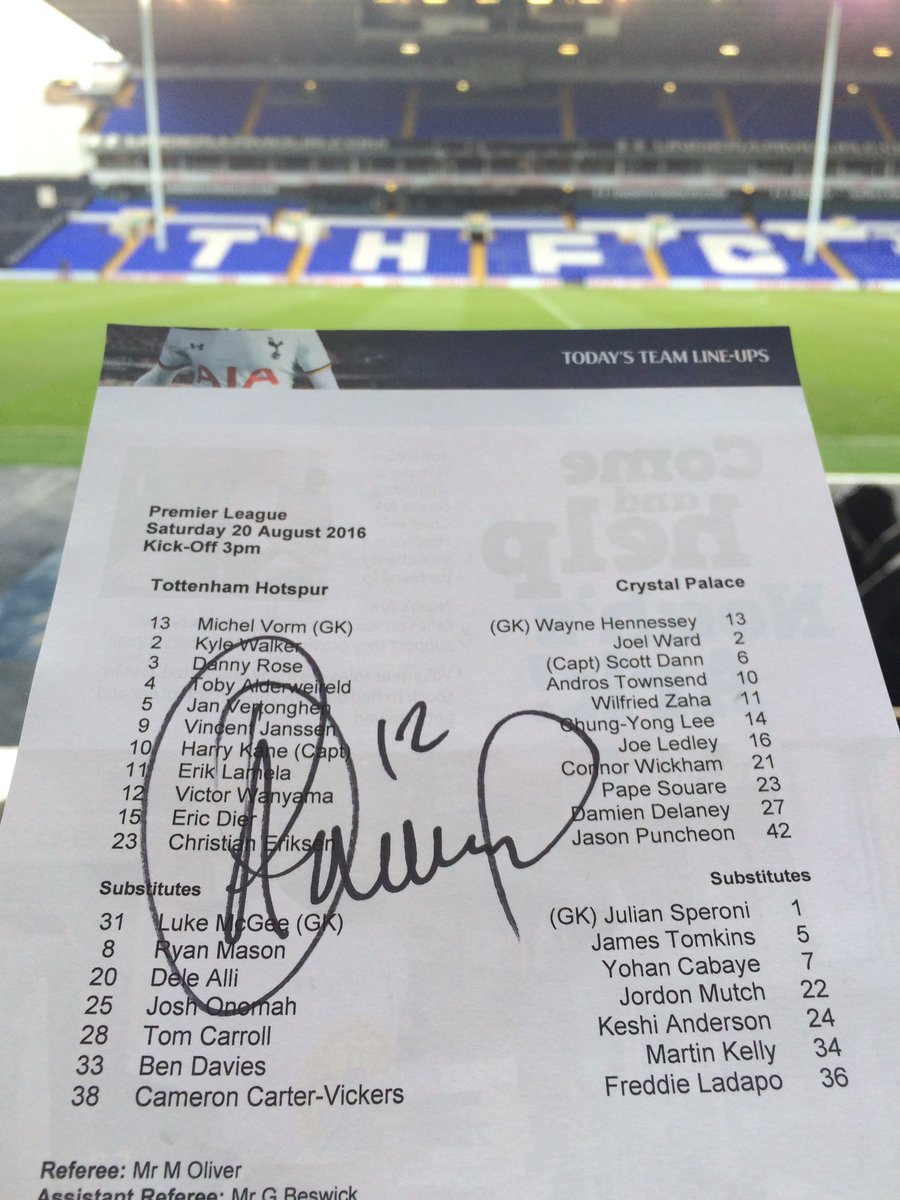 THFC
TODAY'S TEAM LINE-UPS
AIA
Premier League
Saturday 20 August 2016
Kick-Off 3pm
Tottenham Hotspur
13 Michel Vorm (GK)
2 Kyle Walker
3 Danny Rose
4 Toby Alderweireld
5 Jan Vertonghen
9 Vincent Janssen
10 Harry Kane (Capt)
11 Erik Lamela
12 Victor Wanyama
15 Eric Dier
23 Christian Eriksen
Substitutes
31 Luke McGee (GK)
8 Ryan Mason
20 Dele Alli
25 Josh Onomah
28 Tom Carroll
33 Ben Davies
38 Cameron Carter-Vickers
Crystal Palace
(GK) Wayne Hennessey 13
Joel Ward 2
(Capt) Scott Dann 6
Andros Townsend 10
Wilfried Zaha 11
Chung-Yong Lee 14
Joe Ledley 16
Connor Wickham 21
Pape Souare 23
Damien Delaney 27
Jason Puncheon 42
Substitutes
(GK) Julian Speroni 1
James Tomkins 5
Yohan Cabaye 7
Jordon Mutch 22
Keshi Anderson 24
Martin Kelly 34
Freddie Ladapo 36
12
Referee: Mr M Oliver
Assistant Referee: Mr G Beswick